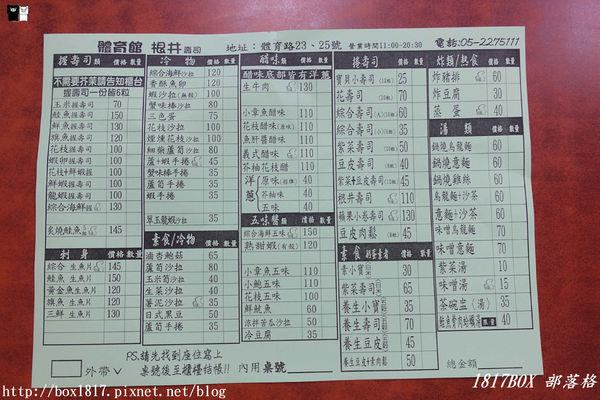 體育館 根井 壽司
地址: 體育路23、25號
營業時間11:00-20:30
電話:05-2275111
握壽司類 價格 數量
不需要芥茉請告知櫃台
握壽司一份皆6粒
玉米握壽司 70
鮭魚握壽司 150
鮮魚握壽司 130
旗魚握壽司 120
花枝握壽司 100
蝦卵握壽司 100
花枝+鮮蝦握 100
鮮蝦握壽司 100
龍蝦握壽司 100
綜合海鮮握 130
炙燒鮭魚 145
刺身 價格 數量
綜合生魚片 145
鮭魚生魚片 150
黃金魚生魚片 120
旗魚生魚片 120
三鮮生魚片 130
冷物 價格 數量
綜合海鮮沙拉 120
香酥魚卵 120
蝦沙拉(無殼) 100
蟹味棒沙拉 100
三色蛋 75
花枝沙拉 100
煙燻花枝沙拉 100
細柴蘆筍沙拉 80
蘆+蝦手捲 45
蟹味棒手捲 35
蘆筍手捲 35
蝦手捲 35
草玉龍蝦沙拉 35
素食/冷物 價格 數量
滷杏鮑菇 65
蘆筍沙拉 80
玉米筍沙拉 40
生菜沙拉 40
薯泥沙拉 35
日式黑豆 50
蘆筍手捲 35
醋味 價格 數量
醋味底部皆有洋蔥
生牛肉 130
小章魚醋味 110
花枝醋味(原味) 110
魚肝醬醋味 110
義式醋味 110
芥柚花枝醋 110
洋蔥
原味 40
芥柚味 40
五味 40
五味醬類 價格 數量
綜合海鮮五味 150
熟甜蝦(有殼) 120
小章魚五味 110
小鮑五味 110
花枝五味 110
鮮魷魚 60
涼拌苦瓜沙拉 50
冷豆腐 35
捲壽司 價格 數量
寶貝小壽司 25
花壽司 70
綜合壽司 60
綜合小壽司 35
紫菜壽司 50
豆皮壽司 45
紫菜+豆皮壽司 45
根井壽司 110
蘋果小卷壽司 130
豆皮肉鬆 45
素食 價格 數量
素小寶 30
紫菜壽司 55
養生小寶 35
養生壽司 70
養生豆皮 45
養生豆皮+素肉鬆 50
炸類/熱食 價格 數量
炸豬排 60
炸豆腐 30
蒸蛋 40
湯類 價格 數量
鍋燒烏龍麵 60
鍋燒意麵 60
鍋燒雞絲 60
烏龍麵+沙茶 60
意麵+沙茶 60
味噌烏龍麵 60
味噌意麵 60
紫菜湯 10
味噌湯 15
茶碗盅(湯) 35
鮭魚骨肉蛤蠣湯 40
PS.請先找到座位寫上
桌號後至櫃檯結帳!!
外帶
內用 桌號
總金額
http://box1817.pixnet.net/blog
1817BOX 部落格